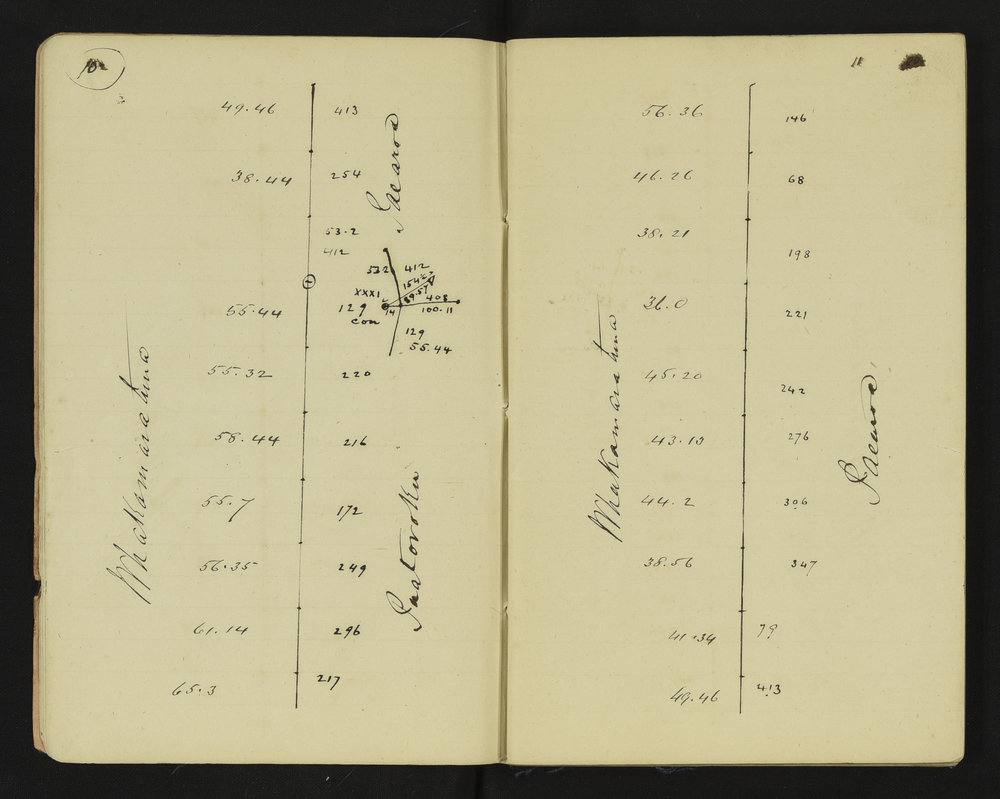 10
49.46 413
38.44 254
53.2
412
532 412
154½
89.57
XXXI
55.44 129 14 408
con 100.11
129
55.44
55.32 220
58.44 216
55.7 172
56.35 249
61.14 296
65.3 217
Whakamaratuna
11
56.36 146
46.26 68
38.21 198
36.0 221
45.20 242
43.10 276
44.2 306
38.56 347
41.34 79
49.46 413
Whakamaratuna